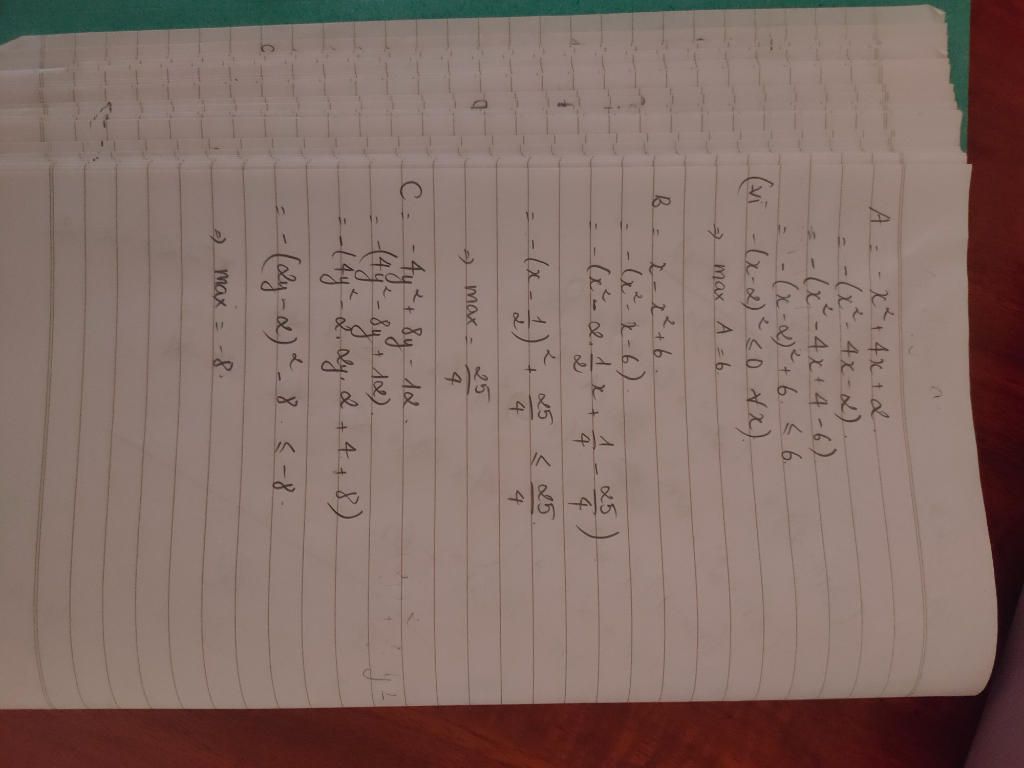 A = -x² + 4x + 2
= -(x² - 4x - 2).
= -(x² - 4x + 4 - 6)
= -(x - 2)² + 6 ≤ 6
(Vì -(x-2)² ≤ 0 ∀x)
⇒ max A = 6
B = x - x² + 6.
= -(x² - x - 6).
= -(x² - 2·1/2x + 1/4 - 25/4)
= -(x - 1/2)² + 25/4 ≤ 25/4.
⇒ max = 25/4
C = -4y² + 8y - 12.
= -(4y² - 8y + 12).
= -(4y² - 2.2y.2 + 4 + 8)
= -(2y - 2)² - 8. ≤ -8.
⇒ max = -8.